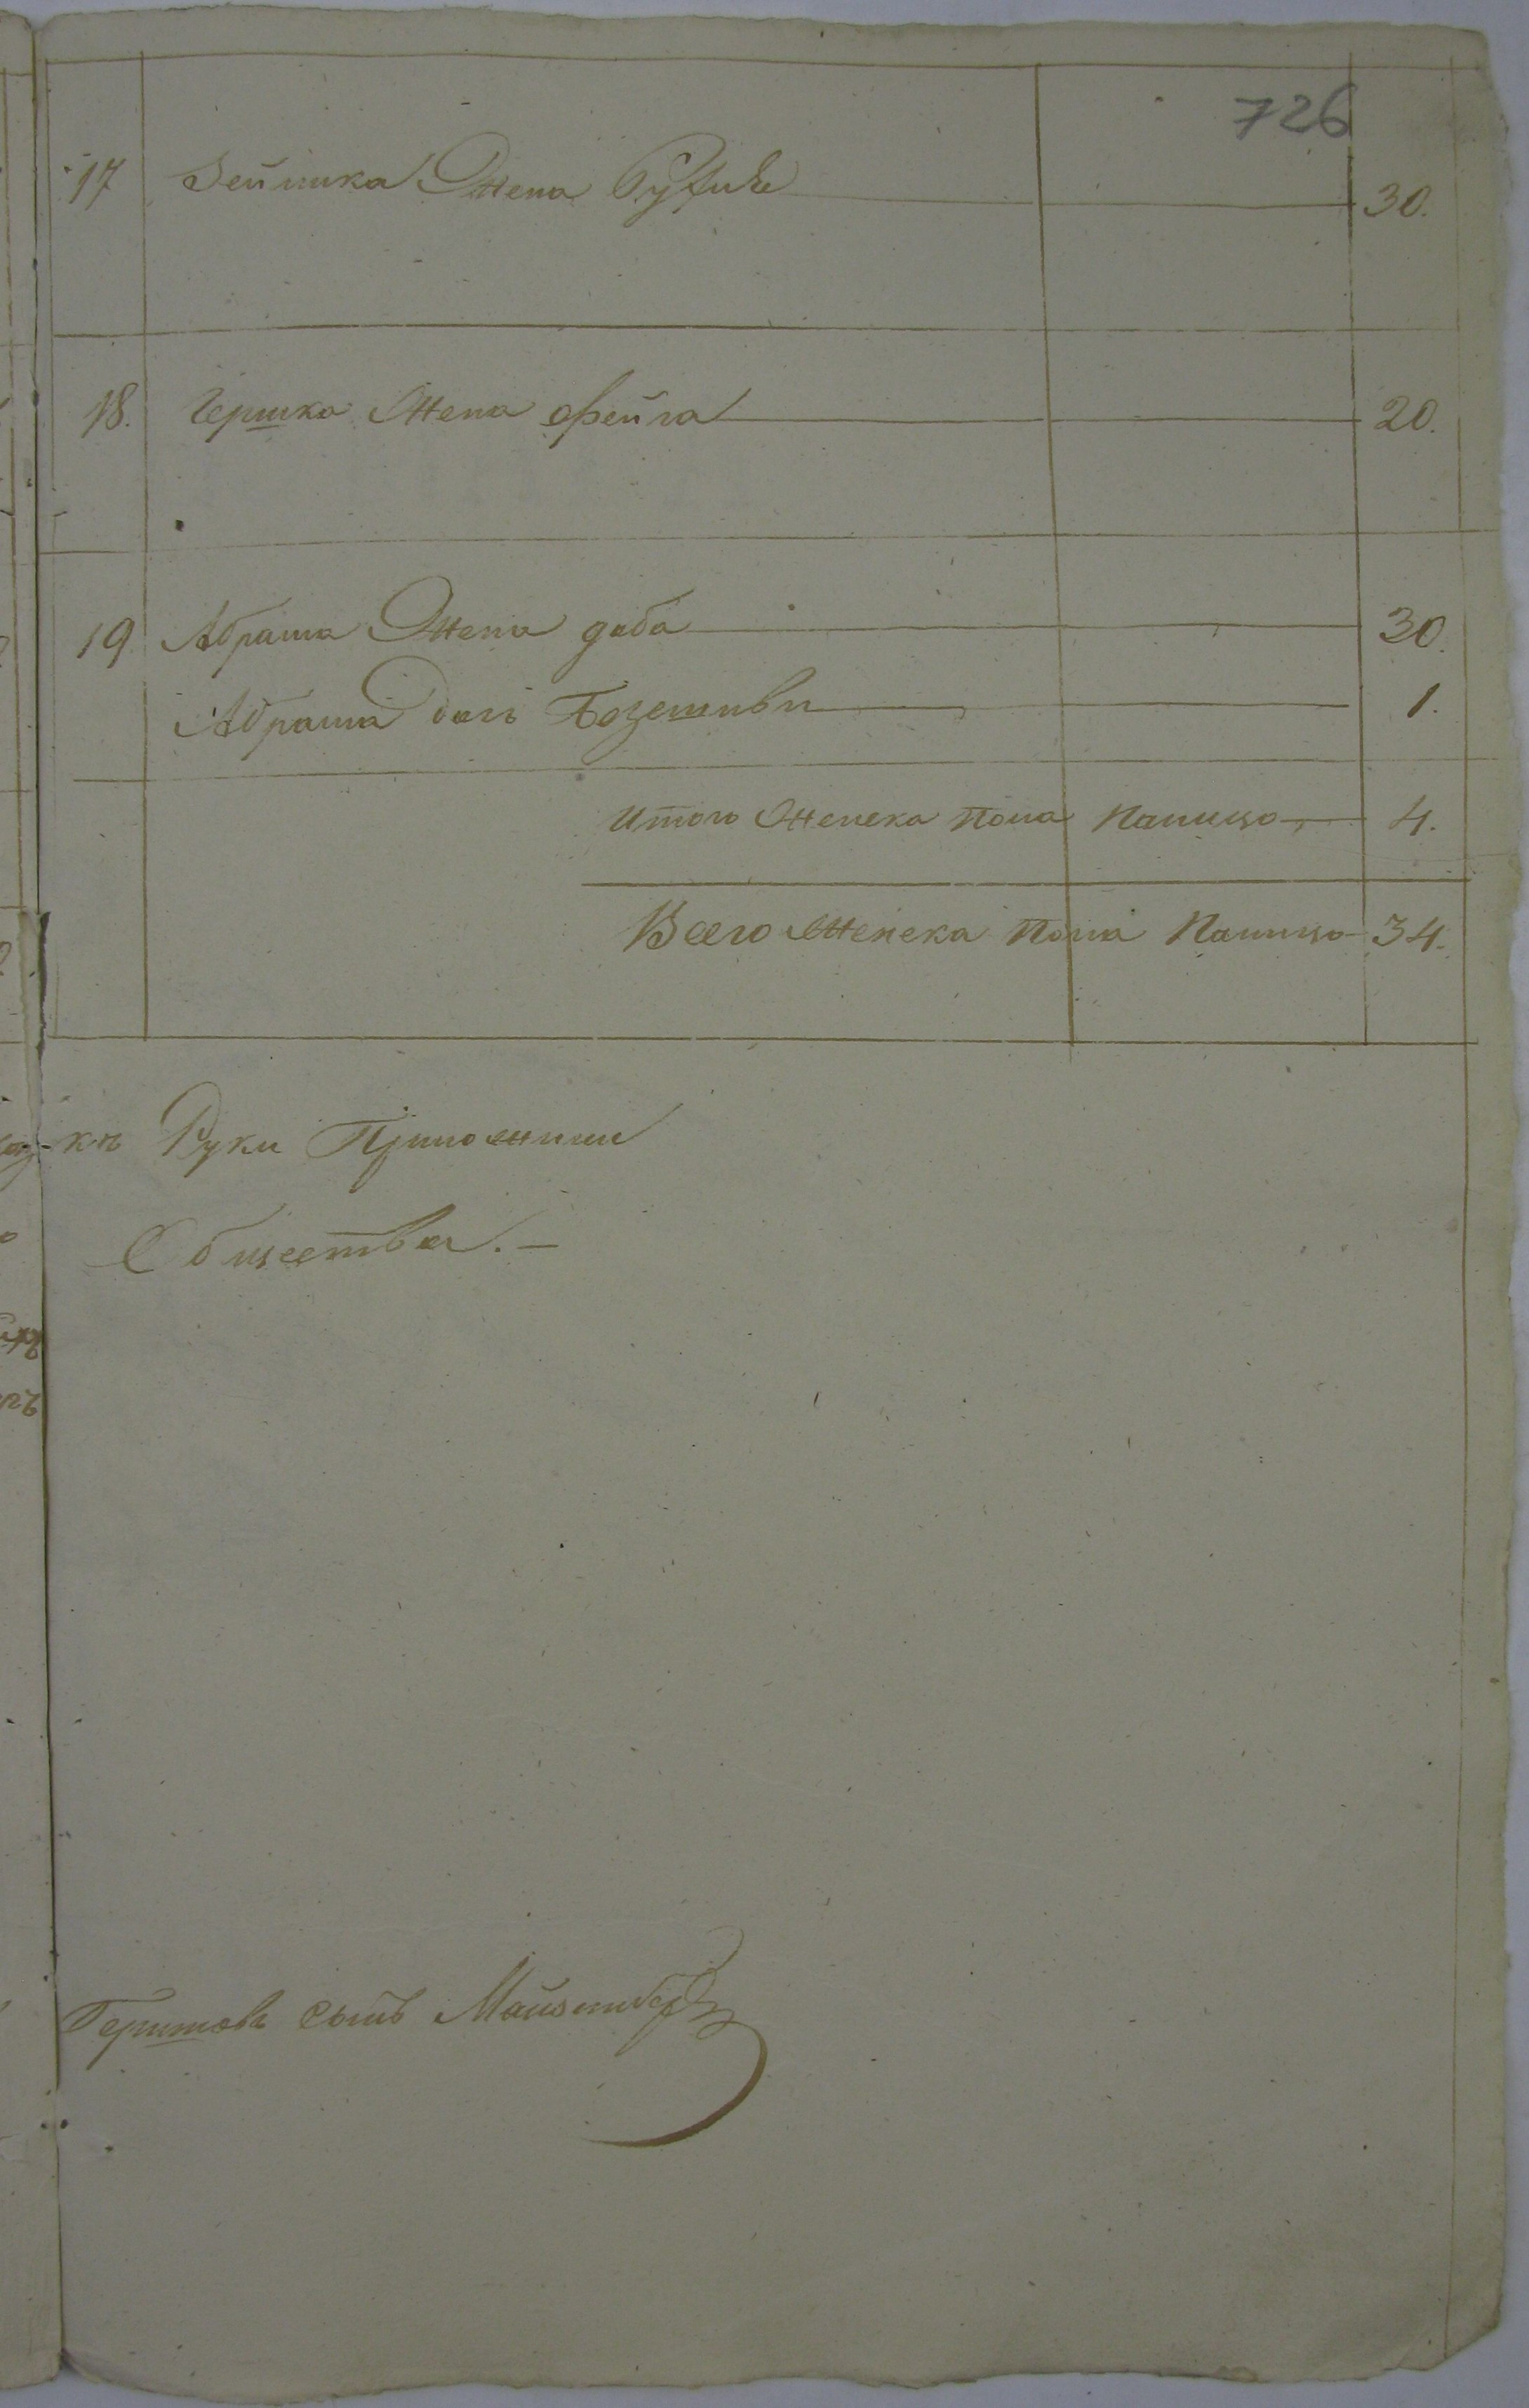 726
17 Зейлика Жена Рухля 30.
18. Гершка Жена фейга 20.
19 Абрама Жена доба 30.
Абрама дочь 1.
итого Женска пола налицо 4.
Всего Женска пола налицо 34.
къ Руки Приложили
Общества. —
Гершковъ сынъ